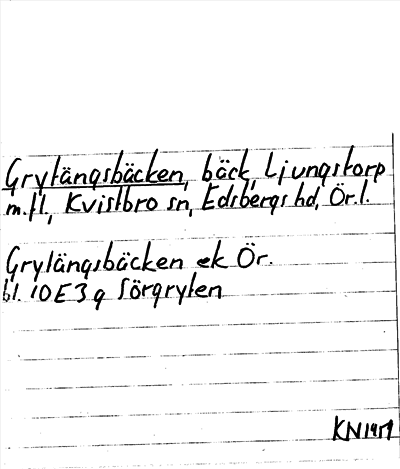 Grytängsbäcken, bäck, Ljungstorp
m.fl., Kvistbro sn, Edsbergs hd, Ör.l.
Grytängsbäcken ek Ör.
bl. 10E3g Sörgryten